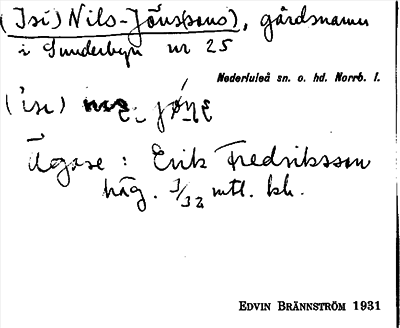 (Isi) Nils-Jöns(sons), gårdsnamn
i Sunderbyn nr 25
Nederluleå sn. o. hd. Norrb. l.
Ägare: Erik Fredriksson
häg. 3/32 mtl. kh.
EDVIN BRÄNNSTRÖM 1931